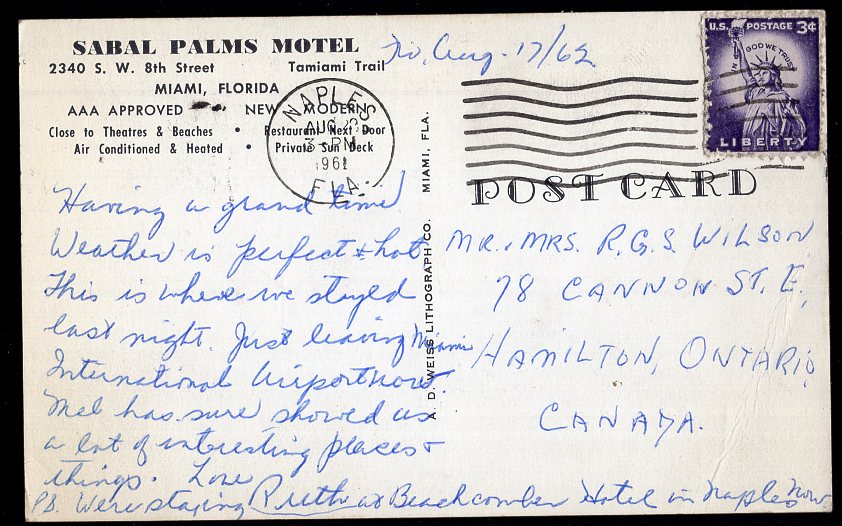 SABAL PALMS MOTEL
2340 S. W. 8th Street Tamiami Trail
MIAMI, FLORIDA
AAA APPROVED NEW MODERN
Close to Theatres & Beaches • Restaurant Next Door
Air Conditioned & Heated • Private Sun Deck
Aug. 17/62
NAPLES
AUG
3 PM
1962
FLA.
U.S. POSTAGE 3¢
IN GOD WE TRUST
LIBERTY
POST CARD
A. D. WEISS LITHOGRAPH CO. MIAMI, FLA.
Having a grand time
Weather is perfect & hot
This is where we stayed
last night. Just leaving Miami
International Airport now.
Mel has sure showed us
a lot of interesting places &
things. Love
Ruth
P.S. We're staying at Beachcomber Hotel in Naples now.
MR. & MRS. R.G.S. WILSON
78 CANNON ST. E.,
HAMILTON, ONTARIO,
CANADA.